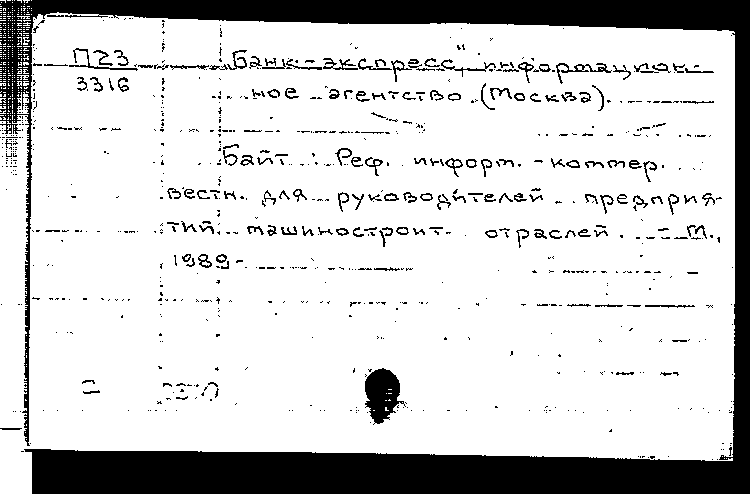 П23 Банк-экспресс", информацион-
3316 ное агентство (Москва).
Байт : Реф. информ.-коммер.
вестн. для руководителей предприя-
тий машиностроит. отраслей. - М.,
1989-